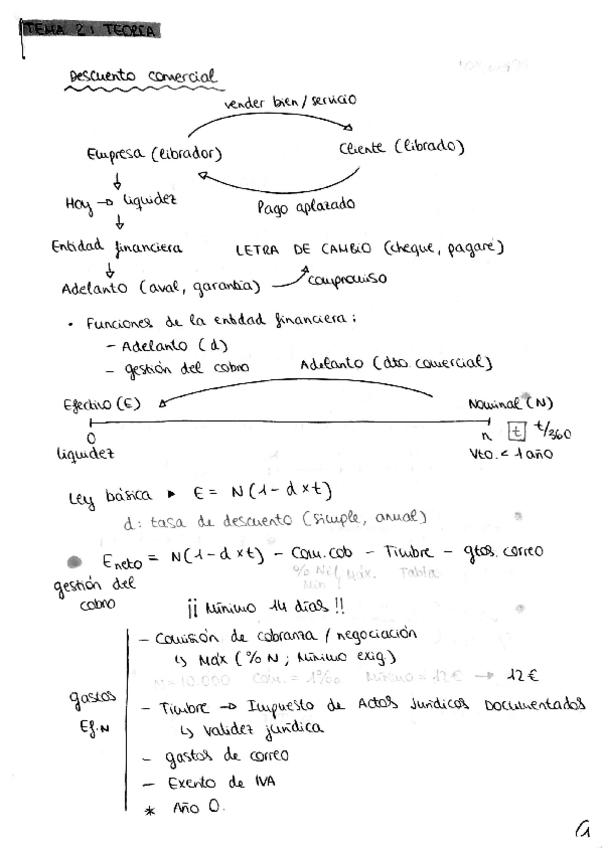 TEMA 2: TEORÍA
Descuento comercial
vender bien / servicio
Empresa (librador)
Cliente (librado)
Hoy → liquidez
Pago aplazado
Entidad financiera
LETRA DE CAMBIO (cheque, pagaré)
Adelanto (aval, garantía)
compromiso
• Funciones de la entidad financiera:
- Adelanto (d)
- gestión del cobro
Adelanto (dto. comercial)
Efectivo (E)
Nominal (N)
0
n
t
t/360
liquidez
Vto. < 1 año
Ley básica ▸ E = N(1 - d × t)
d: tasa de descuento (simple, anual)
E neto = N(1 - d × t) - Com. cob - Timbre - gtos. correo
% N
Máx.
Tabla
Min
gestión del cobro
¡¡ Mínimo 14 días !!
- Comisión de cobranza / negociación
↳ Máx (% N ; Mínimo exig.)
N = 10.000 Com. = 1‰ Mínimo = 12€ → 12€
gastos
Ef. N
- Timbre → Impuesto de Actos Jurídicos Documentados
↳ validez jurídica
- gastos de correo
- Exento de IVA
* Año 0.